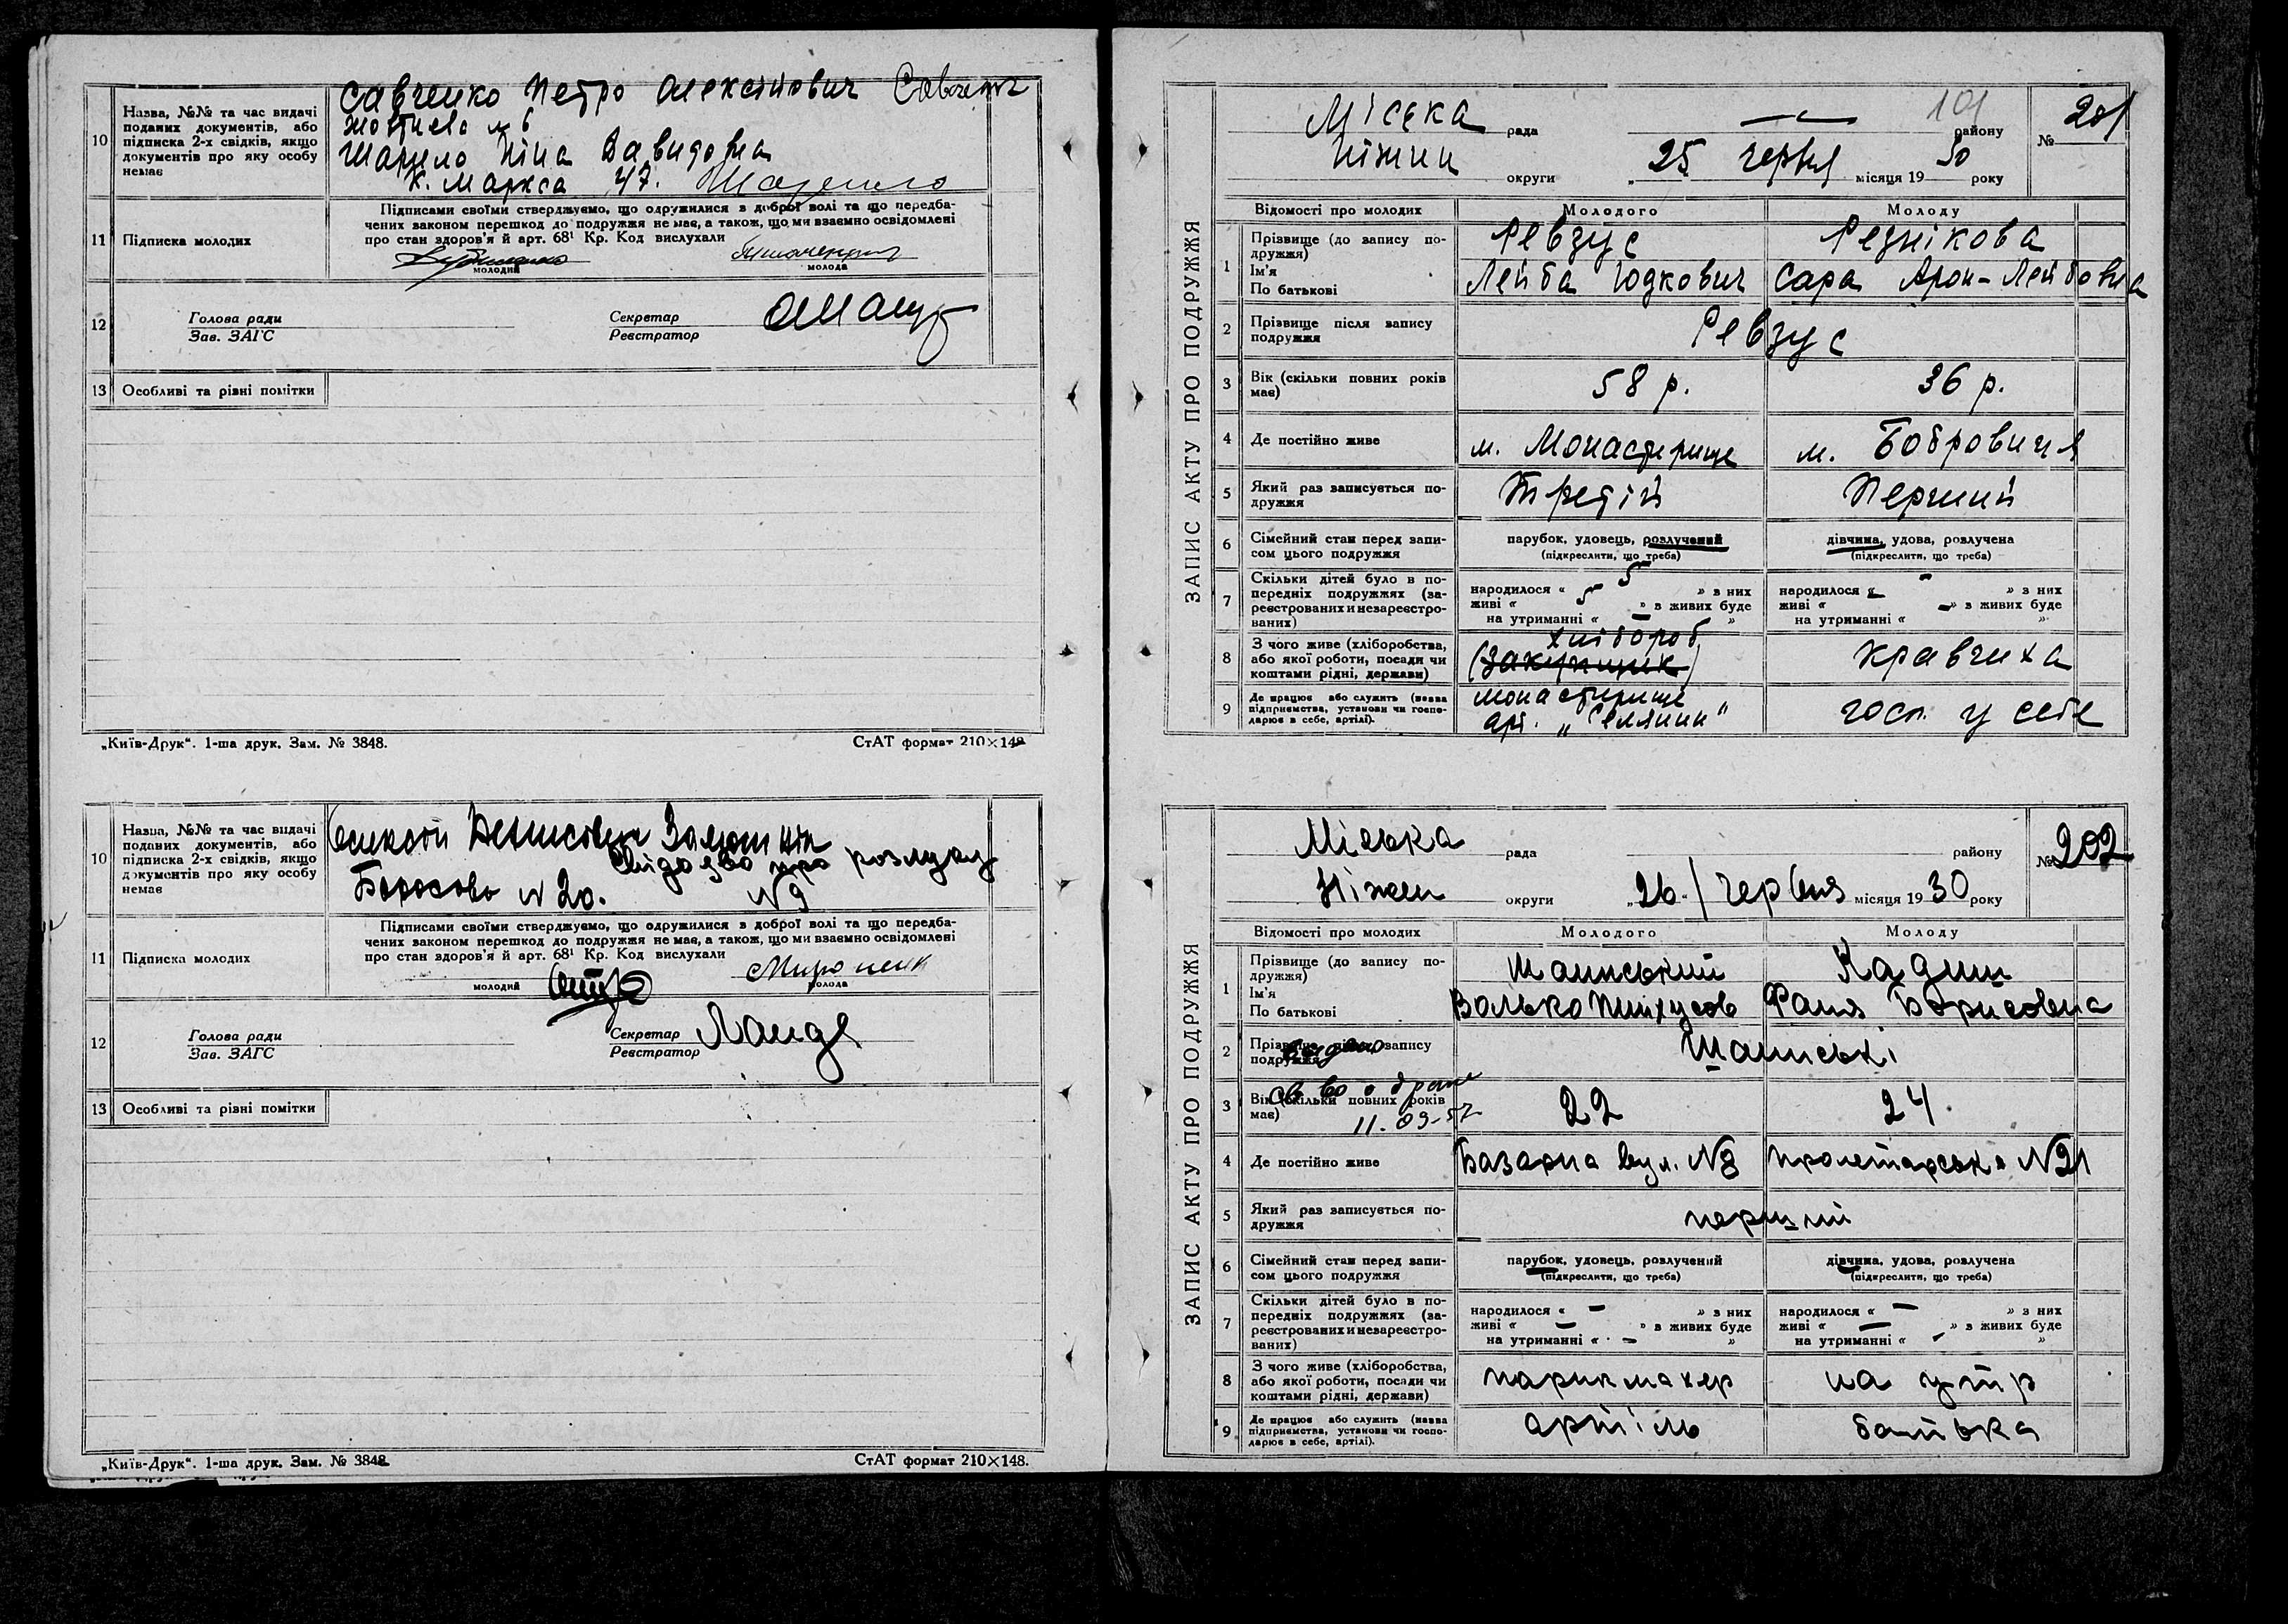 10
Назва, №№ та час видачі
поданих документів, або
підписка 2-х свідків, якщо
документів про яку особу
немає
Савченко Петро Олексійович
№ 6
Ніна Давидовна
К. Маркса 47.
11
Підписка молодих
Підписами своїми стверджуємо, що одружилися з доброї волі та що передба-
чених законом перешкод до подружжя не має, а також, що ми взаємно освідомлені
про стан здоров'я й арт. 68¹ Кр. Код вислухали
молодий
молода
12
Голова ради
Зав. ЗАГС
Секретар
Реєстратор
13
Особливі та різні помітки
„Київ-Друк“. 1-ша друк. Зам. № 3848.
СтАТ формат 210×148
10
Назва, №№ та час видачі
поданих документів, або
підписка 2-х свідків, якщо
документів про яку особу
немає
про розлуку
№ 20. №9
11
Підписка молодих
Підписами своїми стверджуємо, що одружилися з доброї волі та що передба-
чених законом перешкод до подружжя не має, а також, що ми взаємно освідомлені
про стан здоров'я й арт. 68¹ Кр. Код вислухали
молодий
молода
12
Голова ради
Зав. ЗАГС
Секретар
Реєстратор
13
Особливі та різні помітки
„Київ-Друк“. 1-ша друк. Зам. № 3848.
СтАТ формат 210×148.
ЗАПИС АКТУ ПРО ПОДРУЖЖЯ
101
Міська рада — району
№ 201
Ніжин округи „25 червня місяця 1930 року
Відомості про молодих
Молодого
Молоду
1
Прізвище (до запису по-
дружжя)
Ім'я
По батькові
Ревзус
Лейба Юдкович
Резнікова
Сара Арон-Лейбовна
2
Прізвище після запису
подружжя
Ревзус
3
Вік (скільки повних років
має)
58 р.
36 р.
4
Де постійно живе
м. Монастирище
м. Бобровиця
5
Який раз записується по-
дружжя
Третій
Перший
6
Сімейний стан перед запи-
сом цього подружжя
парубок, удовець, розлучений
(підкреслити, що треба)
дівчина, удова, розлучена
(підкреслити, що треба)
7
Скільки дітей було в по-
передніх подружжях (за-
реєстрованих и незареєстро-
ваних)
народилося « 5 » з них
живі « 5 » з живих буде
на утриманні « — »
народилося « — » з них
живі « — » з живих буде
на утриманні « »
8
З чого живе (хліборобства,
або якої роботи, посади чи
коштами рідні, держави)
хлібороб
(закупщик)
кравчиха
9
Де працює або служить (назва
підприємства, установи чи госпо-
дарює в себе, артілі).
монастирище
арт. „Селянин“
госп. у себе
ЗАПИС АКТУ ПРО ПОДРУЖЖЯ
Міська рада району
№ 202
Ніжен округи „26 / червня місяця 1930 року
Відомості про молодих
Молодого
Молоду
1
Прізвище (до запису по-
дружжя)
Ім'я
По батькові
Волько
Кадиш
Фаня Борисовна
2
Прізвище після запису
подружжя
3
Вік (скільки повних років
має)
св во о браке
11.03-57
22
24.
4
Де постійно живе
Базарна вул. №8
пролетарська №21
5
Який раз записується по-
дружжя
перший
6
Сімейний стан перед запи-
сом цього подружжя
парубок, удовець, розлучений
(підкреслити, що треба)
дівчина, удова, розлучена
(підкреслити, що треба)
7
Скільки дітей було в по-
передніх подружжях (за-
реєстрованих и незареєстро-
ваних)
народилося « — » з них
живі « — » з живих буде
на утриманні « — »
народилося « — » з них
живі « — » з живих буде
на утриманні « — »
8
З чого живе (хліборобства,
або якої роботи, посади чи
коштами рідні, держави)
парикмахер
на утр
9
Де працює або служить (назва
підприємства, установи чи госпо-
дарює в себе, артілі).
артіль
батька